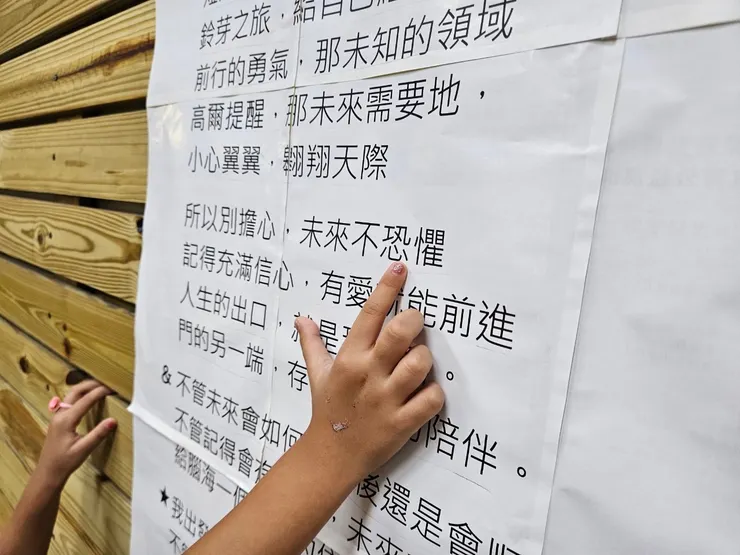 鈴芽之旅，給自己
前行的勇氣，那未知的領域
高爾提醒，那未來需要地，
小心翼翼，翱翔天際
所以別擔心，未來不恐懼
記得充滿信心，有愛 能前進
人生的出口，就是
門的另一端，存 。
& 不管未來會如何 陪伴。
不管記得會有 後還是會
給腦海一個 ，未來
★我出發